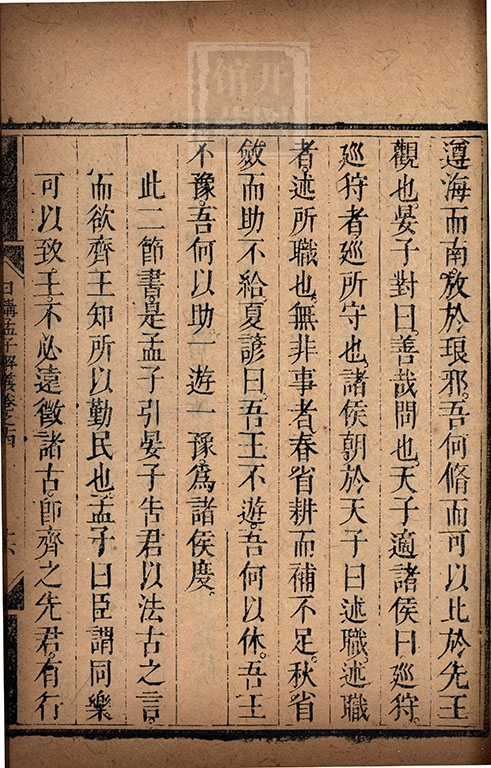 遵海而南。放於琅邪。吾何脩而可以比於先王
觀也。晏子對曰。善哉問也。天子適諸侯曰廵狩。
廵狩者。廵所守也。諸侯朝於天子曰述職。述職
者。述所職也。無非事者。春省耕而補不足。秋省
斂而助不給。夏諺曰。吾王不遊。吾何以休。吾王
不豫。吾何以助。一遊一豫。爲諸侯度。
此二節書。是孟子引晏子告君以法古之言。
而欲齊王知所以勤民也。孟子曰。臣謂同樂
可以致王。不必遠徵諸古。卽齊之先君。有行
日講孟子解義卷之十四